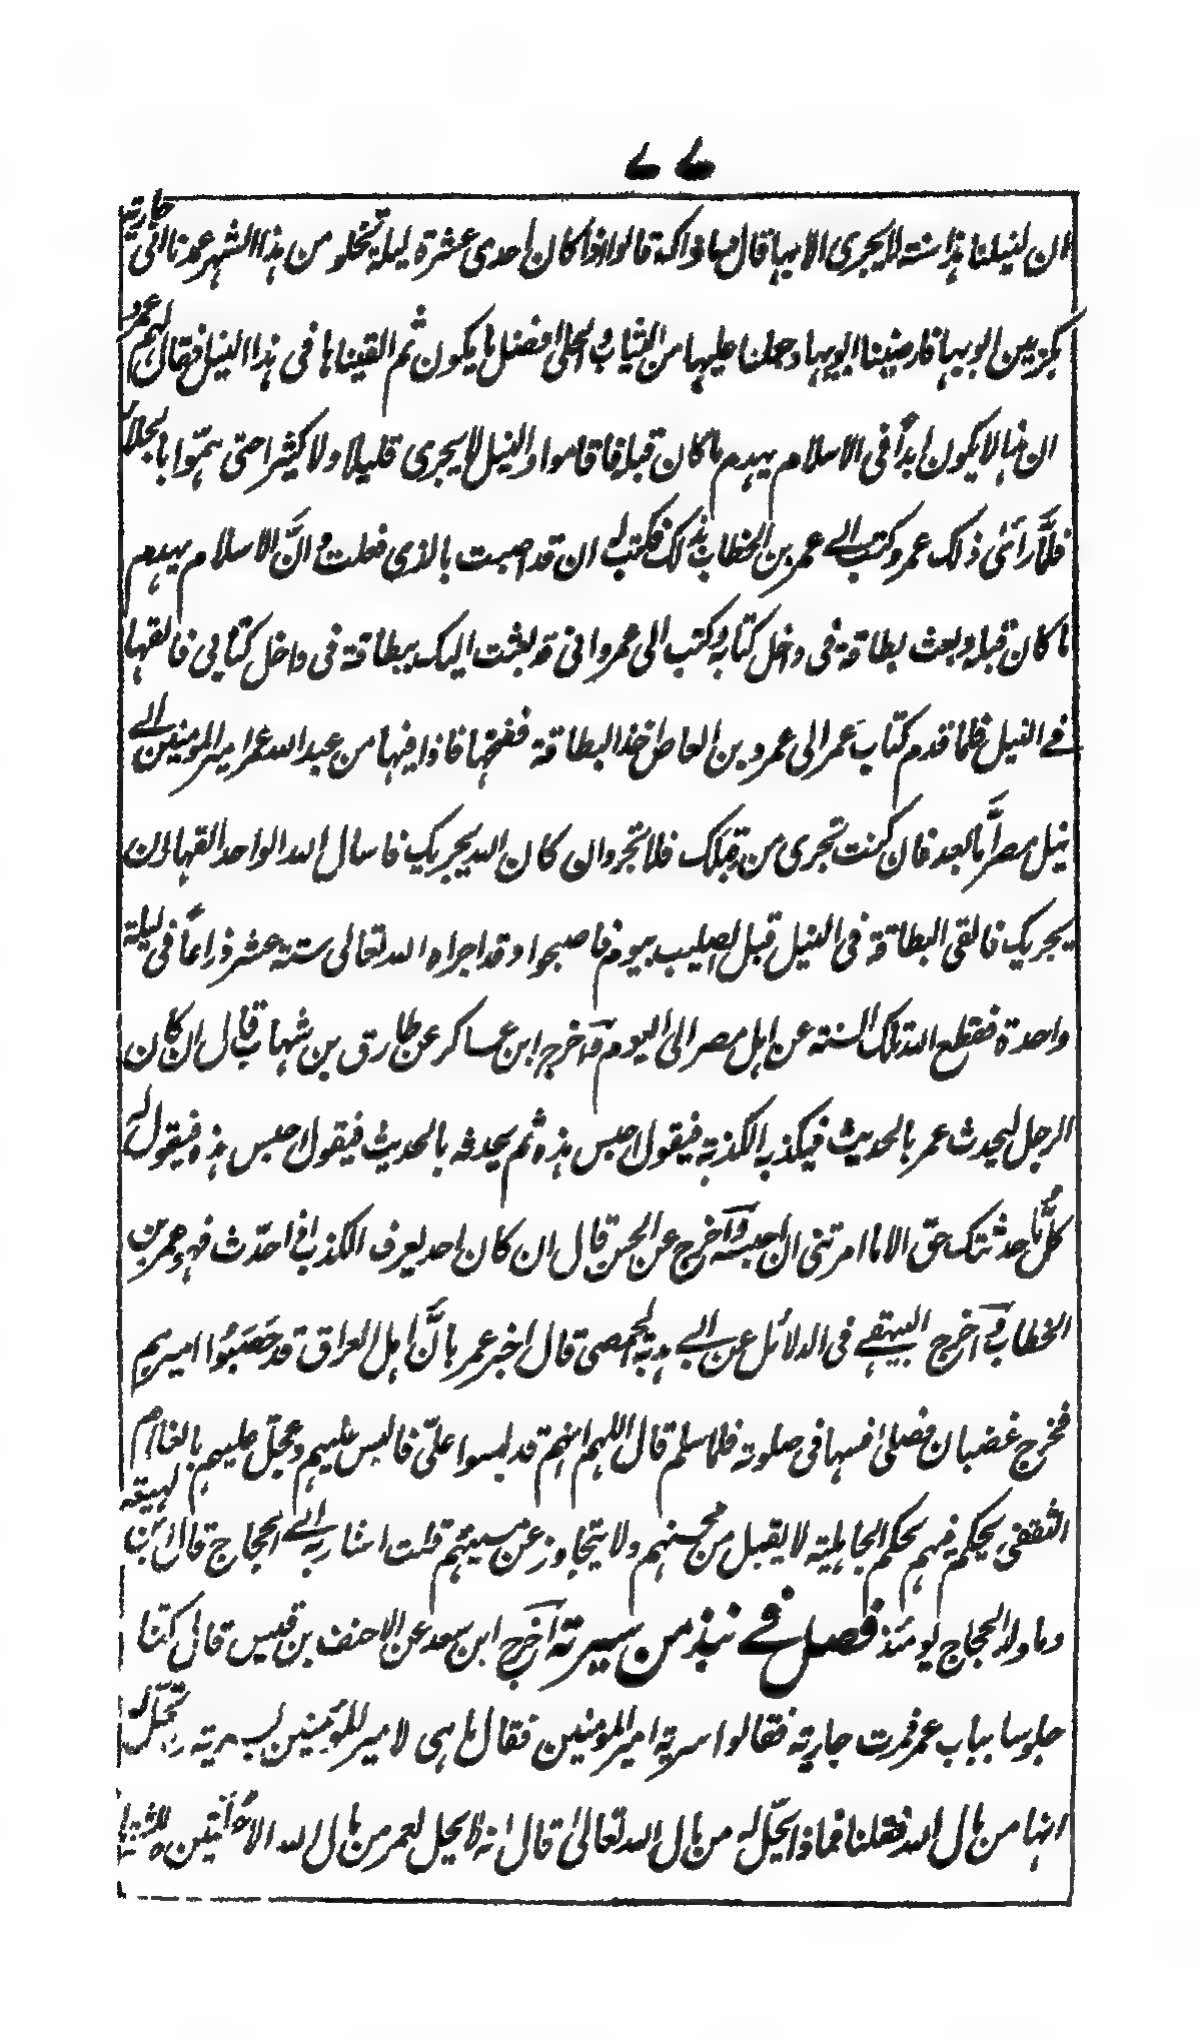 ٧٧
ان لنيلنا هذا سنة لا يجرى الا بها قال وما ذاك قالوا اذا كان احدى عشرة ليلة تخلو من هذا الشهر عمدنا الى جارية
بكر بين ابويها فارضينا ابويها وجعلنا عليها من الثياب والحلى افضل ما يكون ثم القيناها فى هذا النيل فقال لهم عمرو
ان هذا لا يكون ابداً فى الاسلام يهدم ما كان قبله فاقاموا والنيل لا يجرى قليلا ولا كثيرا حتى همّوا بالجلاء
فلمَّا رأى ذلك عمرو كتب الى عمر بن الخطاب بذلك فكتب له ان قد اصبت بالذى فعلت وانَّ الاسلام يهدم
ما كان قبله وبعث بطاقة فى داخل كتابه وكتب الى عمرو انى قد بعثت اليك ببطاقة فى داخل كتابى فالقها
فى النيل فلما قدم كتاب عمر الى عمرو بن العاص اخذ البطاقة ففتحها فاذا فيها من عبد الله عمر امير المومنين الى
نيل مصر امَّا بعد فان كنت تجرى من قبلك فلا تجر وان كان الله يجريك فاسال الله الواحد القهار ان
يجريك فالقى البطاقة فى النيل قبل الصليب بيوم فاصبحوا وقد اجراه الله تعالى ستة عشر ذراعاً فى ليلة
واحدة فقطع الله تلك السنة عن اهل مصر الى اليوم واخرج ابن عساكر عن طارق بن شهاب قال ان كان
الرجل ليحدث عمر بالحديث فيكذبه الكذبة فيقول احبس هذه ثم يحدثه بالحديث فيقول احبس هذه فيقول له
كلُّ ما حدثتك حقّ الا ما امرتنى ان احبسه وآخرج عن الحسن قال ان كان احد يعرف الكذب اذا حدّث فهو عمر بن
الخطاب وآخرج البيهقى فى الدلائل عن ابى هدبة الحمصى قال اخبر عمر بانَّ اهل العراق قد حَصَبُوا اميرهم
فخرج غضبان فصلى فسها فى صلوته فلما سلم قال اللهم انهم قد لبسوا علىّ فالبس عليهم وعجّل عليهم بالغلام
الثقفى يحكم فيهم بحكم الجاهلية لا يقبل من محسنهم ولا يتجاوز عن مسيئهم قلت اشار به الى الحجاج قال ابن لهيعة
وما ولد الحجاج يومئذ فصل فى نبذ من سيرته آخرج ابن سعد عن الاحنف بن قيس قال كنّا
جلوسا بباب عمر فمرت جارية فقالوا سرية امير المومنين فقال ما هى لامير المؤمنين بسرية ولا تحلّ له
انها من مال الله فقلنا فماذا يحلّ له من مال الله تعالى قال انه لا يحل لعمر من مال الله الا حُلّتين